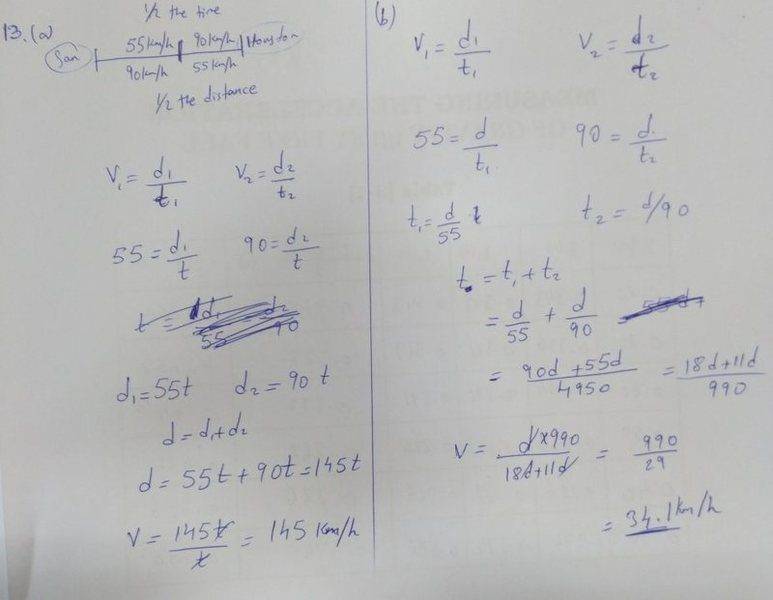 13. (a)
1/2 the time
San 55km/h 90km/h Houston
90km/h 55km/h
1/2 the distance
V₁ = d₁/t₁ V₂ = d₂/t₂
55 = d₁/t 90 = d₂/t
d₁ = 55t d₂ = 90 t
d = d₁+d₂
d = 55t + 90t = 145t
V = 145t/t = 145 Km/h
(b)
V₁ = d₁/t₁ V₂ = d₂/t₂
55 = d/t₁ 90 = d/t₂
t₁ = d/55 t₂ = d/90
t = t₁ + t₂
= d/55 + d/90
= 90d + 55d/4950 = 18d+11d/990
V = d×990/18d+11d = 990/29
= 34.1km/h